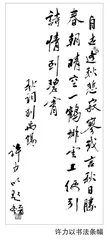 自古逢秋悲寂寥我言秋日
春朝晴空一鶴排雲上便引
詩情到碧霄
秋词刘禹锡
許力以
许力以书法条幅